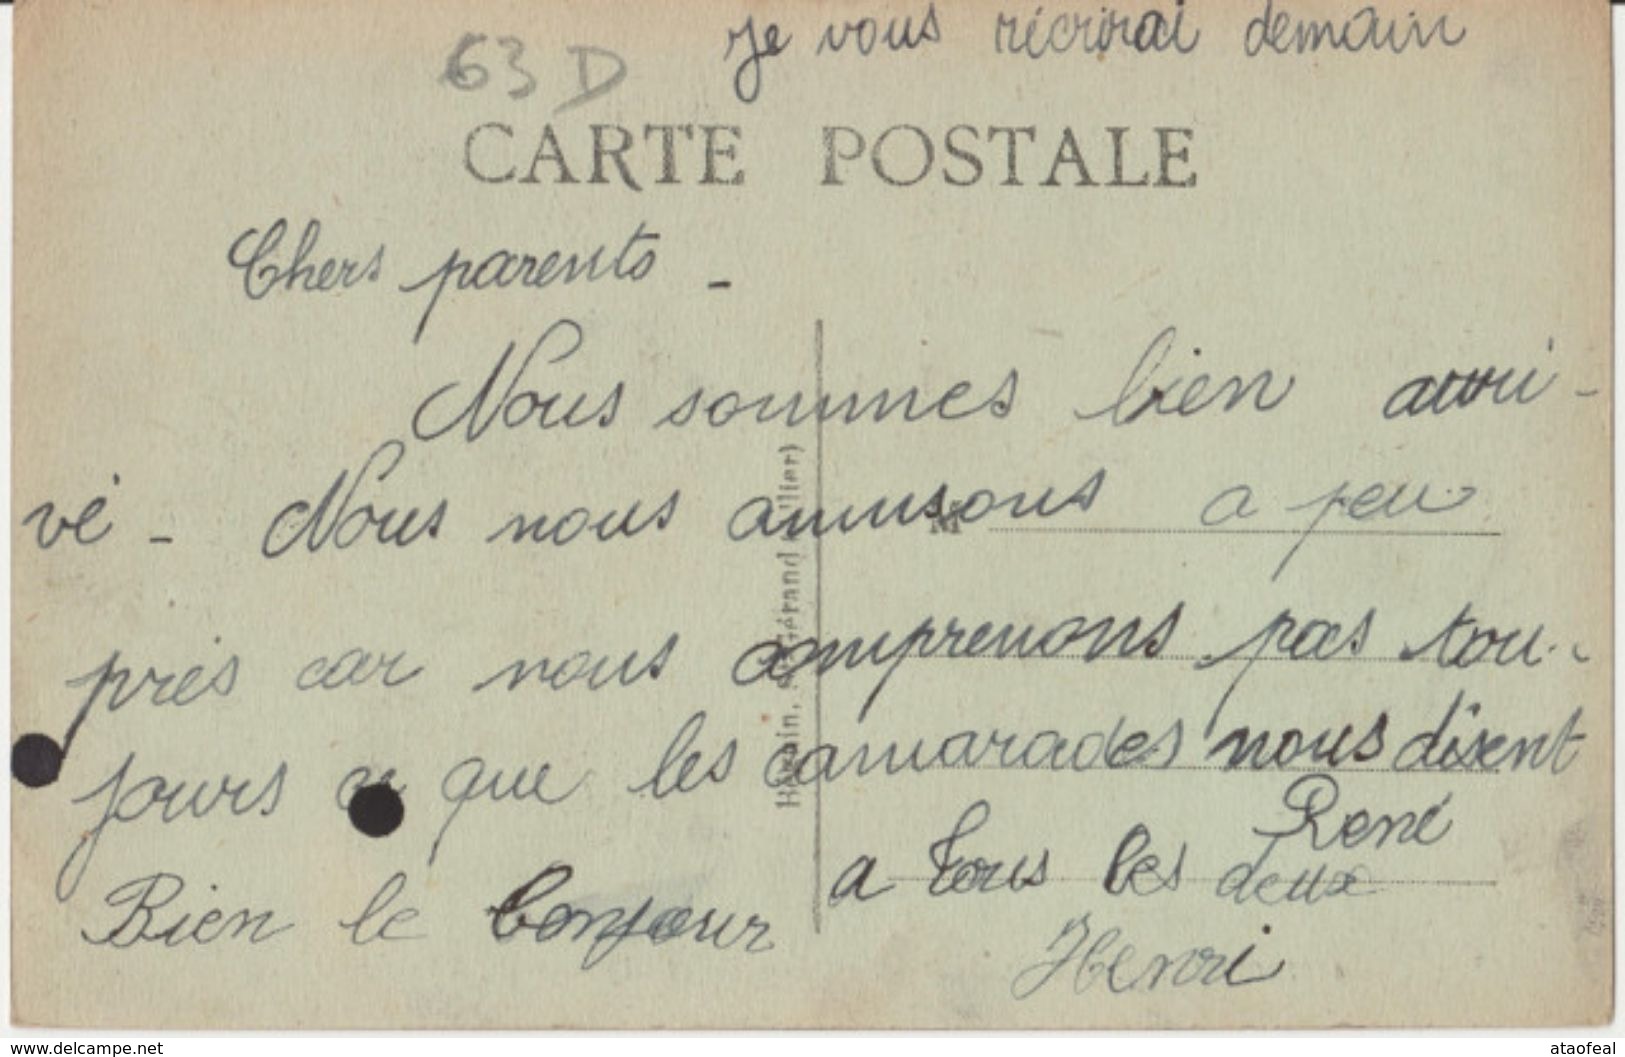 Je vous récrirai demain
63 D
CARTE POSTALE
Chers parents -
Nous sommes bien arri-
vé - Nous nous amusons a peu
M
près car nous comprenons pas tou-
jours ce que les camarades nous disent
René
Bien le bonjour a tous les deux
Henri
www.delcampe.net
ataofeal